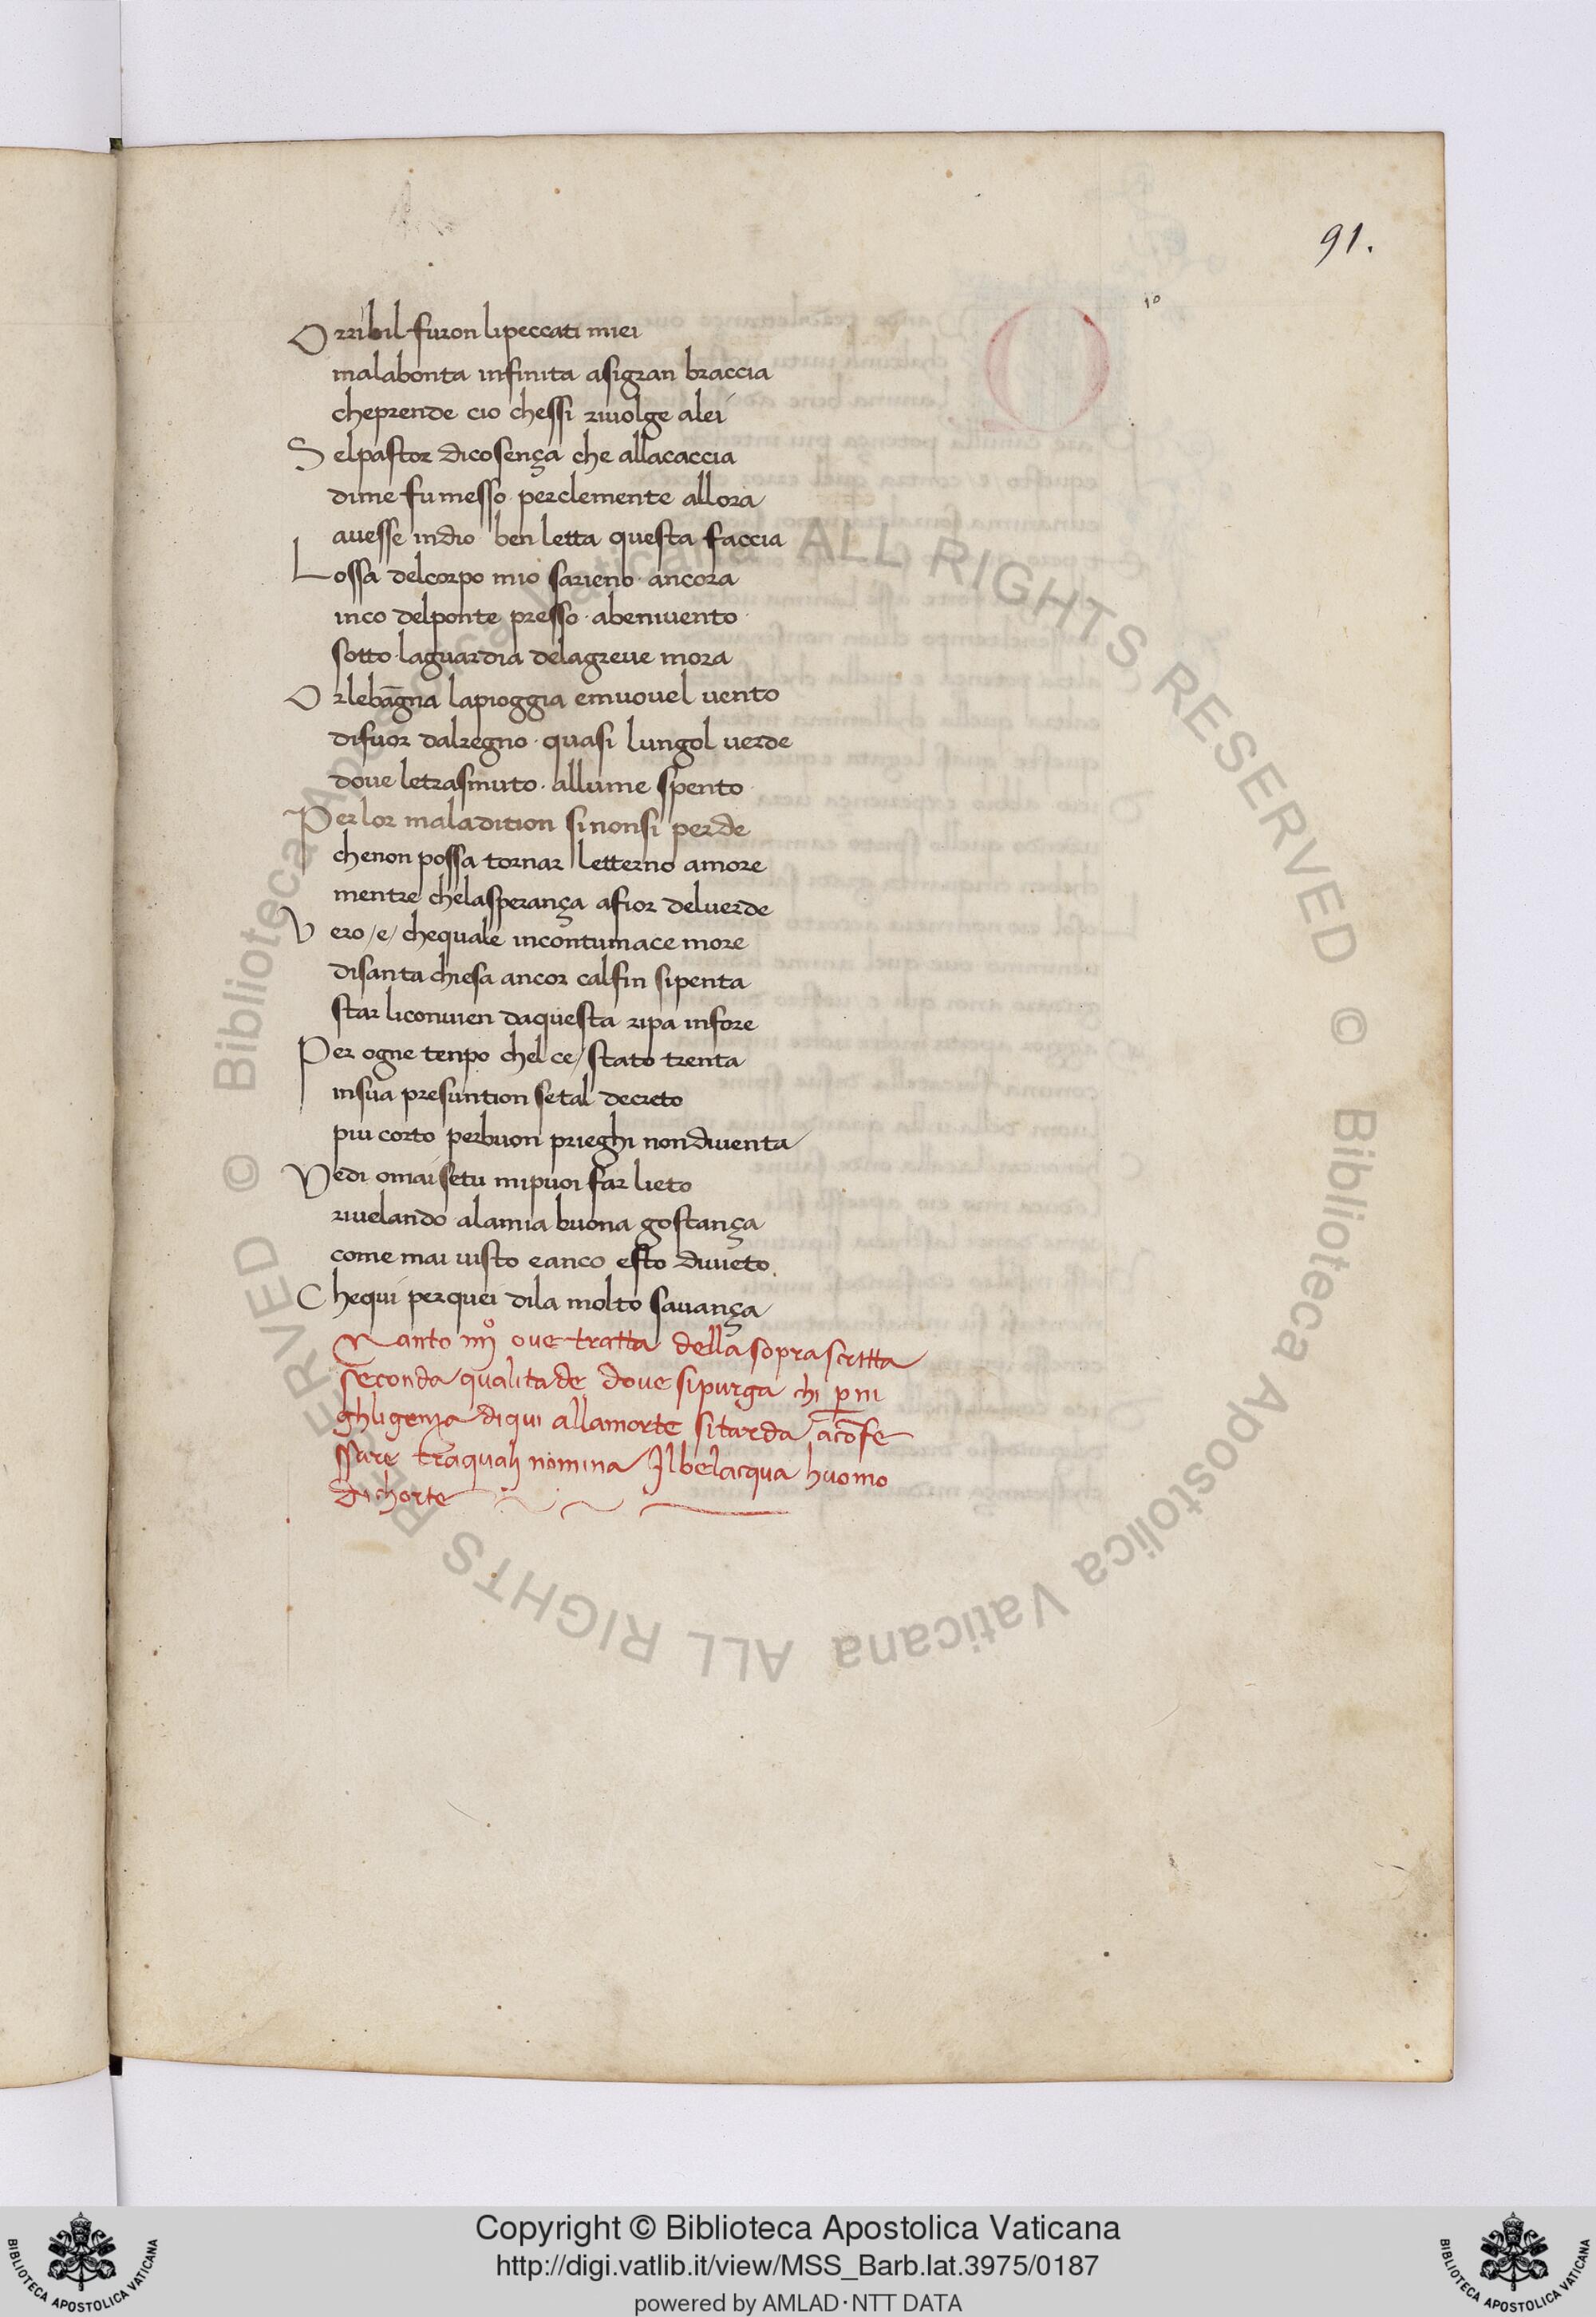 91.
Orribil furon lipeccati miei
malabonta infinita asigran braccia
cheprende cio chessi rivolge alei
Selpastor dicosença che allacaccia
dime fu messo perclemente allora
avesse indio ben letta questa faccia
Lossa delcorpo mio sarieno · ancora
inco delponte presso · abenivento
sotto · laguardia delagreve mora
Orlebāgna lapioggia emuovel vento
difuor dalregno · quasi lungol verde
dove letrasmuto · allume spento
Per lor maladition sinonsi perde
chenon possa tornar letterno amore
mentre chelasperança afior delverde
Vero /e/ chequale incontumace more
disanta chiesa ancor calfin sipenta
star liconvien daquesta ripa infore
Per ogne tenpo chel ce/ stato trenta
insua presuntion setal decreto
piu corto perbuon prieghi nondiventa
Vedi omai setu mipuoi far lieto
rivelando alamia buona gostança
come mai visto eanco esto divieto
Chequi perquei dila molto savança
Canto iiijº ove tratta della soprascritta
seconda qualitade dove sipurga chi p ni
ghligenza diqui allamorte sitarda acōfe
ssare traquali nomina Jlbelacqua huomo
di chorte
Copyright © Biblioteca Apostolica Vaticana
http://digi.vatlib.it/view/MSS_Barb.lat.3975/0187
powered by AMLAD·NTT DATA
BIBLIOTECA APOSTOLICA VATICANA
BIBLIOTECA APOSTOLICA VATICANA
© Biblioteca Apostolica Vaticana ALL RIGHTS RESERVED © Biblioteca Apostolica Vaticana ALL RIGHTS RESERVED